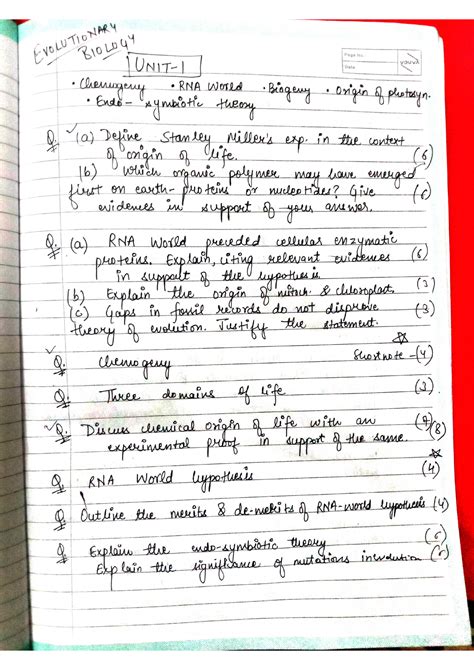 EVOLUTIONARY
BIOLOGY
UNIT-1
Page No.
Date
YOUVA
• Chemogeny • RNA World • Biogeny • Origin of photosyn.
• Endo-symbiotic theory
Q. ✓(a) Define Stanley Miller's exp. in the context
of origin of life. (6)
(b) Which organic polymer may have emerged
first on earth- proteins or nucleotides? Give (6)
evidences in support of your answer.
Q. (a) RNA World preceded cellular enzymatic
proteins. Explain, citing relevant evidences (6)
in support of the hypothesis
(b) Explain the origin of mitoch. & chloroplast. (3)
(c) Gaps in fossil records do not disprove (3)
theory of evolution. Justify the statement.
✓Q. Chemogeny Shortnote - (4)
Q. Three domains of life (3)
✓Q. Discuss chemical origin of life with an
experimental proof in support of the same. (8)
Q. RNA World hypothesis (4)
Q Outline the merits & de-merits of RNA-world hypothesis (4)
Q Explain the endo-symbiotic theory (6)
Explain the significance of mutations in evolution (6)